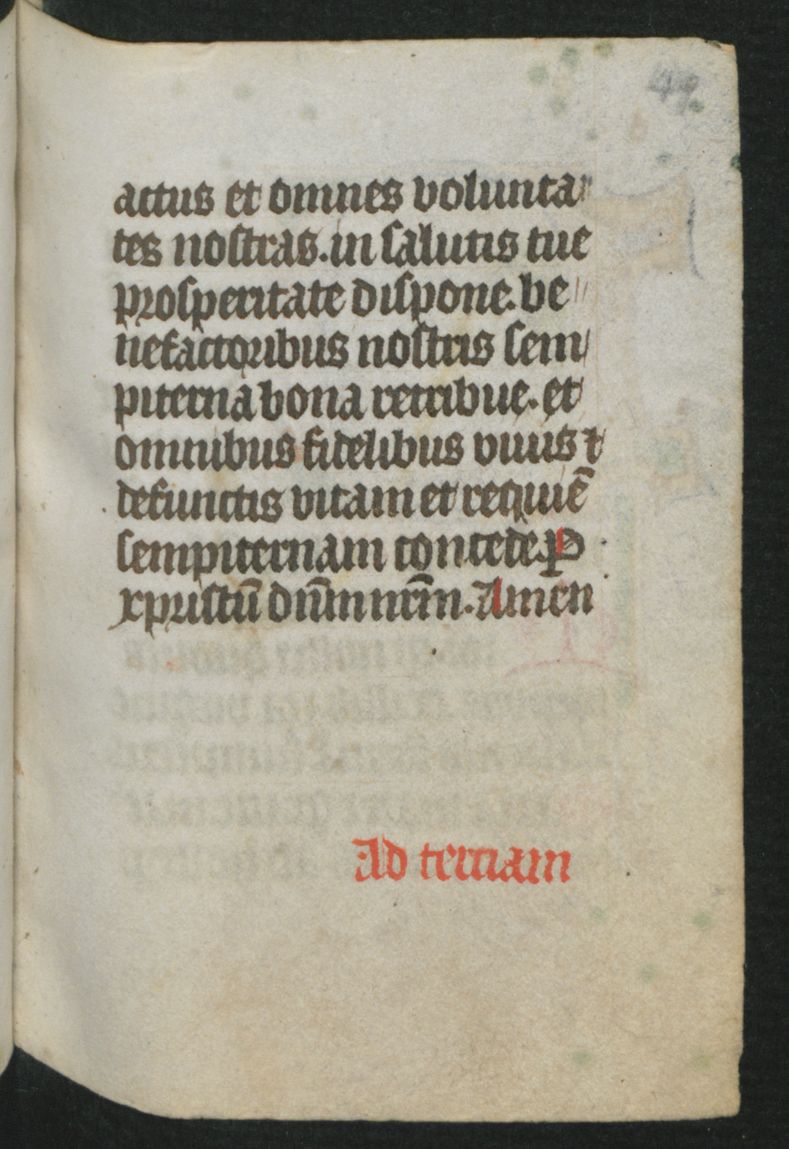 49
actus et omnes volunta
tes nostras. in salutis tue
prosperitate dispone. be
nefactoribus nostris sem
piterna bona retribue. et
omnibus fidelibus viuis ⁊
defunctis vitam et requiē
sempiternam concede. P
xpristū dn̄m nr̄m. Amen
Ad terciam